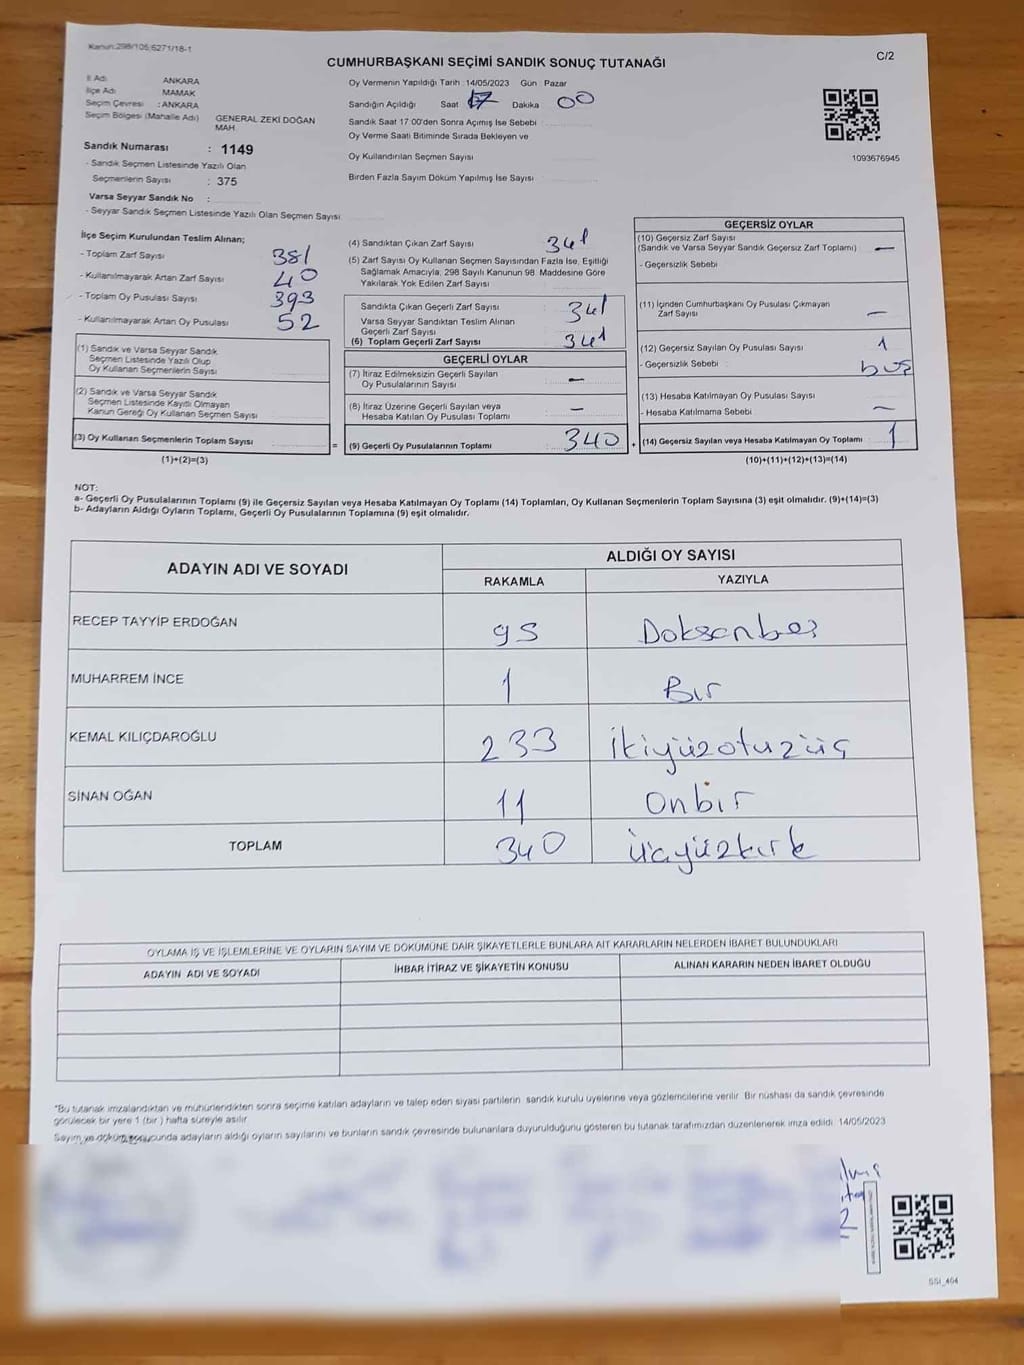 Kanun:298/105;6271/18-1
C/2
CUMHURBAŞKANI SEÇİMİ SANDIK SONUÇ TUTANAĞI
İl Adı ANKARA
İlçe Adı MAMAK
Seçim Çevresi : ANKARA
Seçim Bölgesi (Mahalle Adı) GENERAL ZEKİ DOĞAN
MAH.
Sandık Numarası : 1149
- Sandık Seçmen Listesinde Yazılı Olan
Seçmenlerin Sayısı : 375
Varsa Seyyar Sandık No :
- Seyyar Sandık Seçmen Listesinde Yazılı Olan Seçmen Sayısı
Oy Vermenin Yapıldığı Tarih : 14/05/2023 Gün : Pazar
Sandığın Açıldığı Saat 17 Dakika 00
Sandık Saat 17:00'den Sonra Açımış İse Sebebi
Oy Verme Saati Bitiminde Sırada Bekleyen ve
Oy Kullandırılan Seçmen Sayısı
Birden Fazla Sayım Döküm Yapılmış İse Sayısı
1093676945
İlçe Seçim Kurulundan Teslim Alınan;
- Toplam Zarf Sayısı 381
- Kullanılmayarak Artan Zarf Sayısı 40
- Toplam Oy Pusulası Sayısı 393
- Kullanılmayarak Artan Oy Pusulası 52
(1) Sandık ve Varsa Seyyar Sandık
Seçmen Listesinde Yazılı Olup
Oy Kullanan Seçmenlerin Sayısı
(2) Sandık ve Varsa Seyyar Sandık
Seçmen Listesinde Kayıtlı Olmayan
Kanun Gereği Oy Kullanan Seçmen Sayısı
(3) Oy Kullanan Seçmenlerin Toplam Sayısı =
(1)+(2)=(3)
(4) Sandıktan Çıkan Zarf Sayısı 341
(5) Zarf Sayısı Oy Kullanan Seçmen Sayısından Fazla İse, Eşitliği
Sağlamak Amacıyla, 298 Sayılı Kanunun 98. Maddesine Göre
Yakılarak Yok Edilen Zarf Sayısı
Sandıkta Çıkan Geçerli Zarf Sayısı 341
Varsa Seyyar Sandıktan Teslim Alınan
Geçerli Zarf Sayısı
(6) Toplam Geçerli Zarf Sayısı 341
GEÇERLİ OYLAR
(7) İtiraz Edilmeksizin Geçerli Sayılan
Oy Pusulalarının Sayısı —
(8) İtiraz Üzerine Geçerli Sayılan veya
Hesaba Katılan Oy Pusulası Toplamı —
(9) Geçerli Oy Pusulalarının Toplamı 340 +
GEÇERSİZ OYLAR
(10) Geçersiz Zarf Sayısı
(Sandık ve Varsa Seyyar Sandık Geçersiz Zarf Toplamı) —
- Geçersizlik Sebebi
(11) İçinden Cumhurbaşkanı Oy Pusulası Çıkmayan
Zarf Sayısı —
(12) Geçersiz Sayılan Oy Pusulası Sayısı 1
- Geçersizlik Sebebi boş
(13) Hesaba Katılmayan Oy Pusulası Sayısı
- Hesaba Katılmama Sebebi —
(14) Geçersiz Sayılan veya Hesaba Katılmayan Oy Toplamı 1
(10)+(11)+(12)+(13)=(14)
NOT:
a- Geçerli Oy Pusulalarının Toplamı (9) ile Geçersiz Sayılan veya Hesaba Katılmayan Oy Toplamı (14) Toplamları, Oy Kullanan Seçmenlerin Toplam Sayısına (3) eşit olmalıdır. (9)+(14)=(3)
b- Adayların Aldığı Oyların Toplamı, Geçerli Oy Pusulalarının Toplamına (9) eşit olmalıdır.
ADAYIN ADI VE SOYADI
ALDIĞI OY SAYISI
RAKAMLA YAZIYLA
RECEP TAYYİP ERDOĞAN 95 Doksanbeş
MUHARREM İNCE 1 Bir
KEMAL KILIÇDAROĞLU 233 İkiyüzotuzüç
SİNAN OĞAN 11 Onbir
TOPLAM 340 Üçyüzkırk
OYLAMA İŞ VE İŞLEMLERİNE VE OYLARIN SAYIM VE DÖKÜMÜNE DAİR ŞİKAYETLERLE BUNLARA AİT KARARLARIN NELERDEN İBARET BULUNDUKLARI
ADAYIN ADI VE SOYADI İHBAR İTİRAZ VE ŞİKAYETİN KONUSU ALINAN KARARIN NEDEN İBARET OLDUĞU
"Bu tutanak imzalandıktan ve mühürlendikten sonra seçime katılan adayların ve talep eden siyasi partilerin sandık kurulu üyelerine veya gözlemcilerine verilir. Bir nüshası da sandık çevresinde
görülecek bir yere 1 (bir ) hafta süreyle asılır.
Sayım ve döküm sonucunda adayların aldığı oyların sayılarını ve bunların sandık çevresinde bulunanlara duyurulduğunu gösteren bu tutanak tarafımızdan düzenlenerek imza edildi. 14/05/2023
2
SSI_464